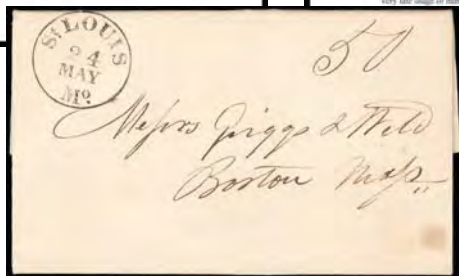 St LOUIS
24
MAY
Mo.
50
Messrs Griggs & Weld
Boston Mass